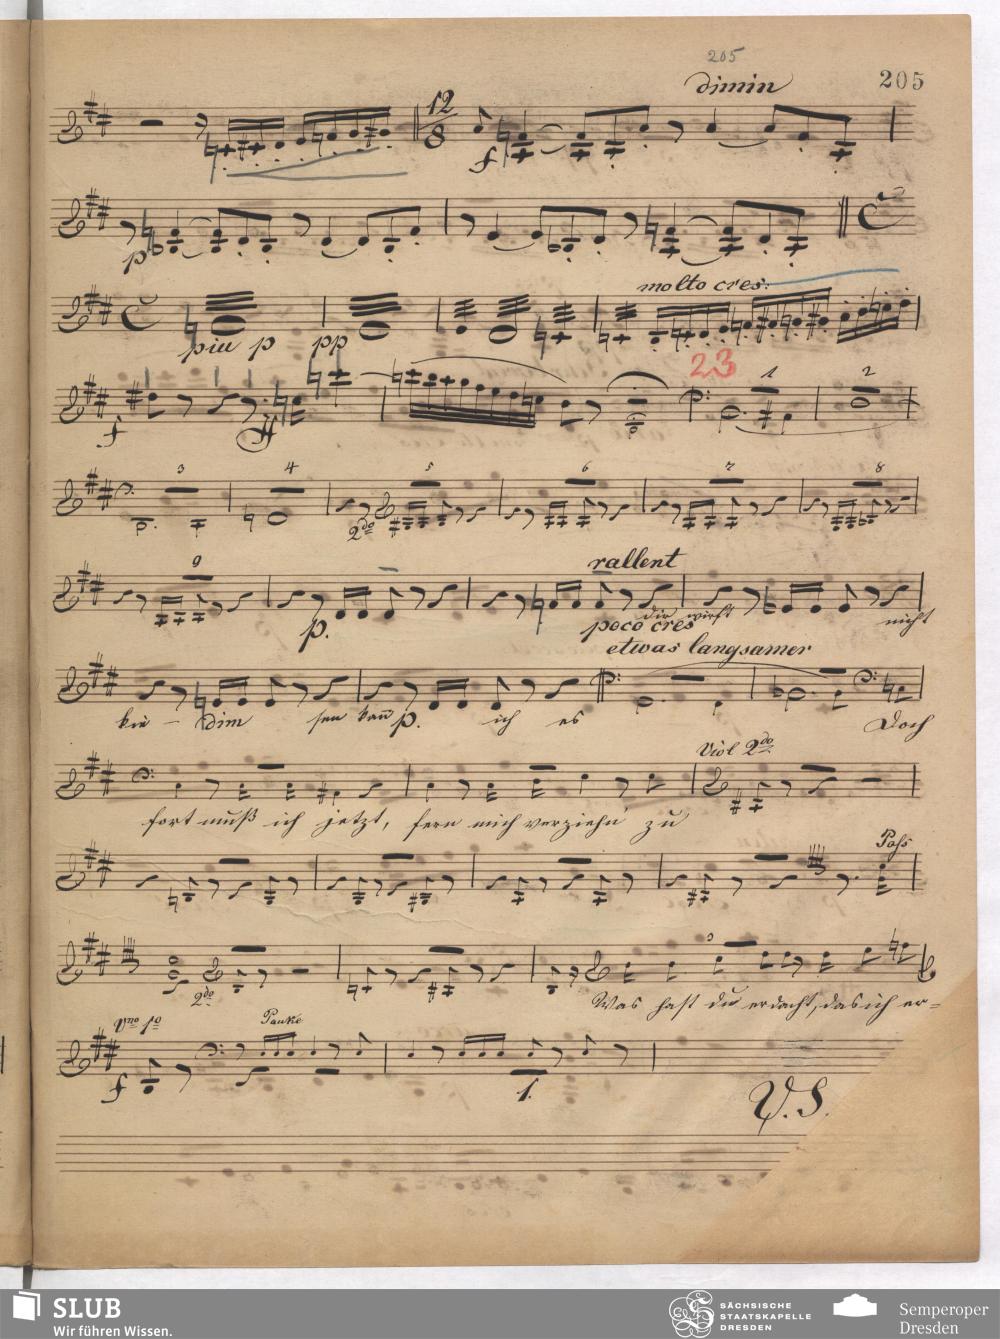 205
205
dimin
12
8
f
p
molto cres:
piu p pp
23
f ff 1 2
3 4 5 6 7 8
2do
9 rallent
p. poco cres
dir wirst nicht
etwas langsamer
dim p. ich es Doch
Viol 2do
fort muß ich jetzt, fern mich verziehn zu
2do
Was hast du erdacht, das ich er=
Vno 1o Pauke
f 1.
V.S.
SLUB
Wir führen Wissen.
SÄCHSISCHE
STAATSKAPELLE
DRESDEN
Semperoper
Dresden